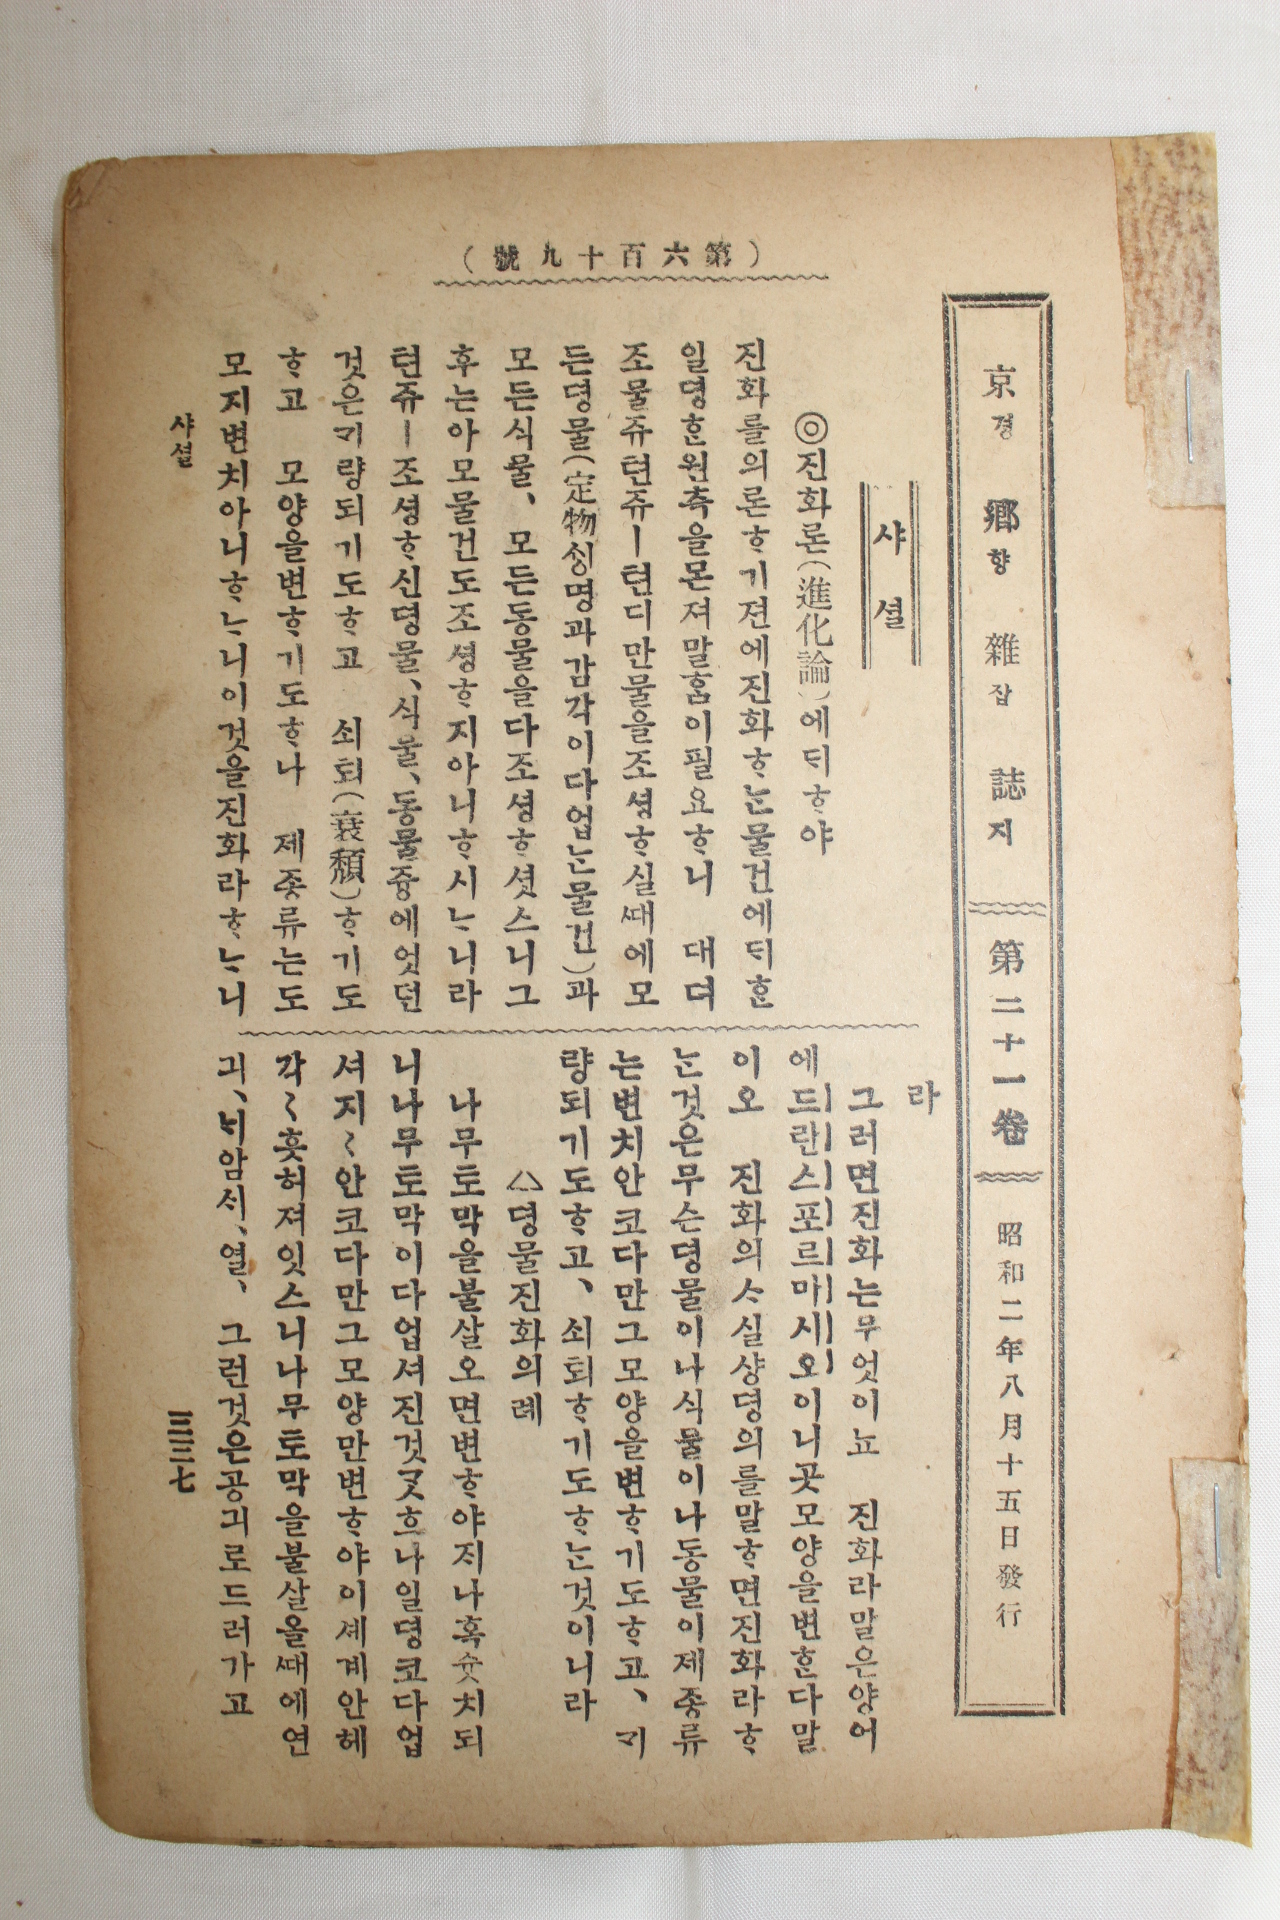 （第六百十九號）
京경 鄕향 雜잡 誌지 第二十一卷 昭和二年八月十五日發行
샤셜
◎진화론（進化論）에ᄃᆡᄒᆞ야
진화를의론ᄒᆞ기젼에진화ᄒᆞᄂᆞᆫ물건에ᄃᆡᄒᆞᆫ
일뎡ᄒᆞᆫ원측을몬져말ᄒᆞᆷ이필요ᄒᆞ니 대뎌
조물쥬텬쥬ㅣ텬디만물을조셩ᄒᆞ실ᄯᅢ에모
든뎡물（定物ᄉᆡᆼ명과감각이다업ᄂᆞᆫ물건）과
모든식물、모든동물을다조셩ᄒᆞ셧스니그
후는아모물건도조셩ᄒᆞ지아니ᄒᆞ시ᄂᆞ니라
텬쥬ㅣ조셩ᄒᆞ신뎡물、식물、동물즁에엇던
것은ᄀᆡ량되기도ᄒᆞ고 쇠퇴（衰頹）ᄒᆞ기도
ᄒᆞ고 모양을변ᄒᆞ기도ᄒᆞ나 제죵류는도
모지변치아니ᄒᆞᄂᆞ니이것을진화라ᄒᆞᄂᆞ니
라
그러면진화는무엇이뇨 진화라말은양어
에드란스포르마시오이니곳모양을변ᄒᆞᆫ다말
이오 진화의ᄉᆞ실샹뎡의를말ᄒᆞ면진화라ᄒᆞ
ᄂᆞᆫ것은무슨뎡물이나식물이나동물이제죵류
는변치안코다만그모양을변ᄒᆞ기도ᄒᆞ고、ᄀᆡ
량되기도ᄒᆞ고、쇠퇴ᄒᆞ기도ᄒᆞᄂᆞᆫ것이니라
△뎡물진화의례
나무토막을불살오면변ᄒᆞ야ᄌᆡ나혹슛치되
니나무토막이다업셔진것ᄀᆞᆺ흐나일뎡코다업
셔지〻안코다만그모양만변ᄒᆞ야이셰계안헤
각〻훗허져잇스니나무토막을불살올ᄯᅢ에연
긔、ᄂᆡ암ᄉᆡ、열、그런것은공긔로드러가고
샤셜
三三七